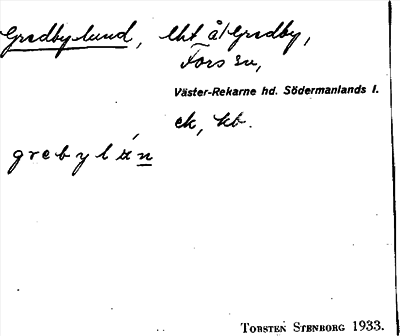 Gredbylund, lht å Gredby,
Fors sn,
Väster-Rekarne hd. Södermanlands l.
ek, kb.
Torsten Stenborg 1933.